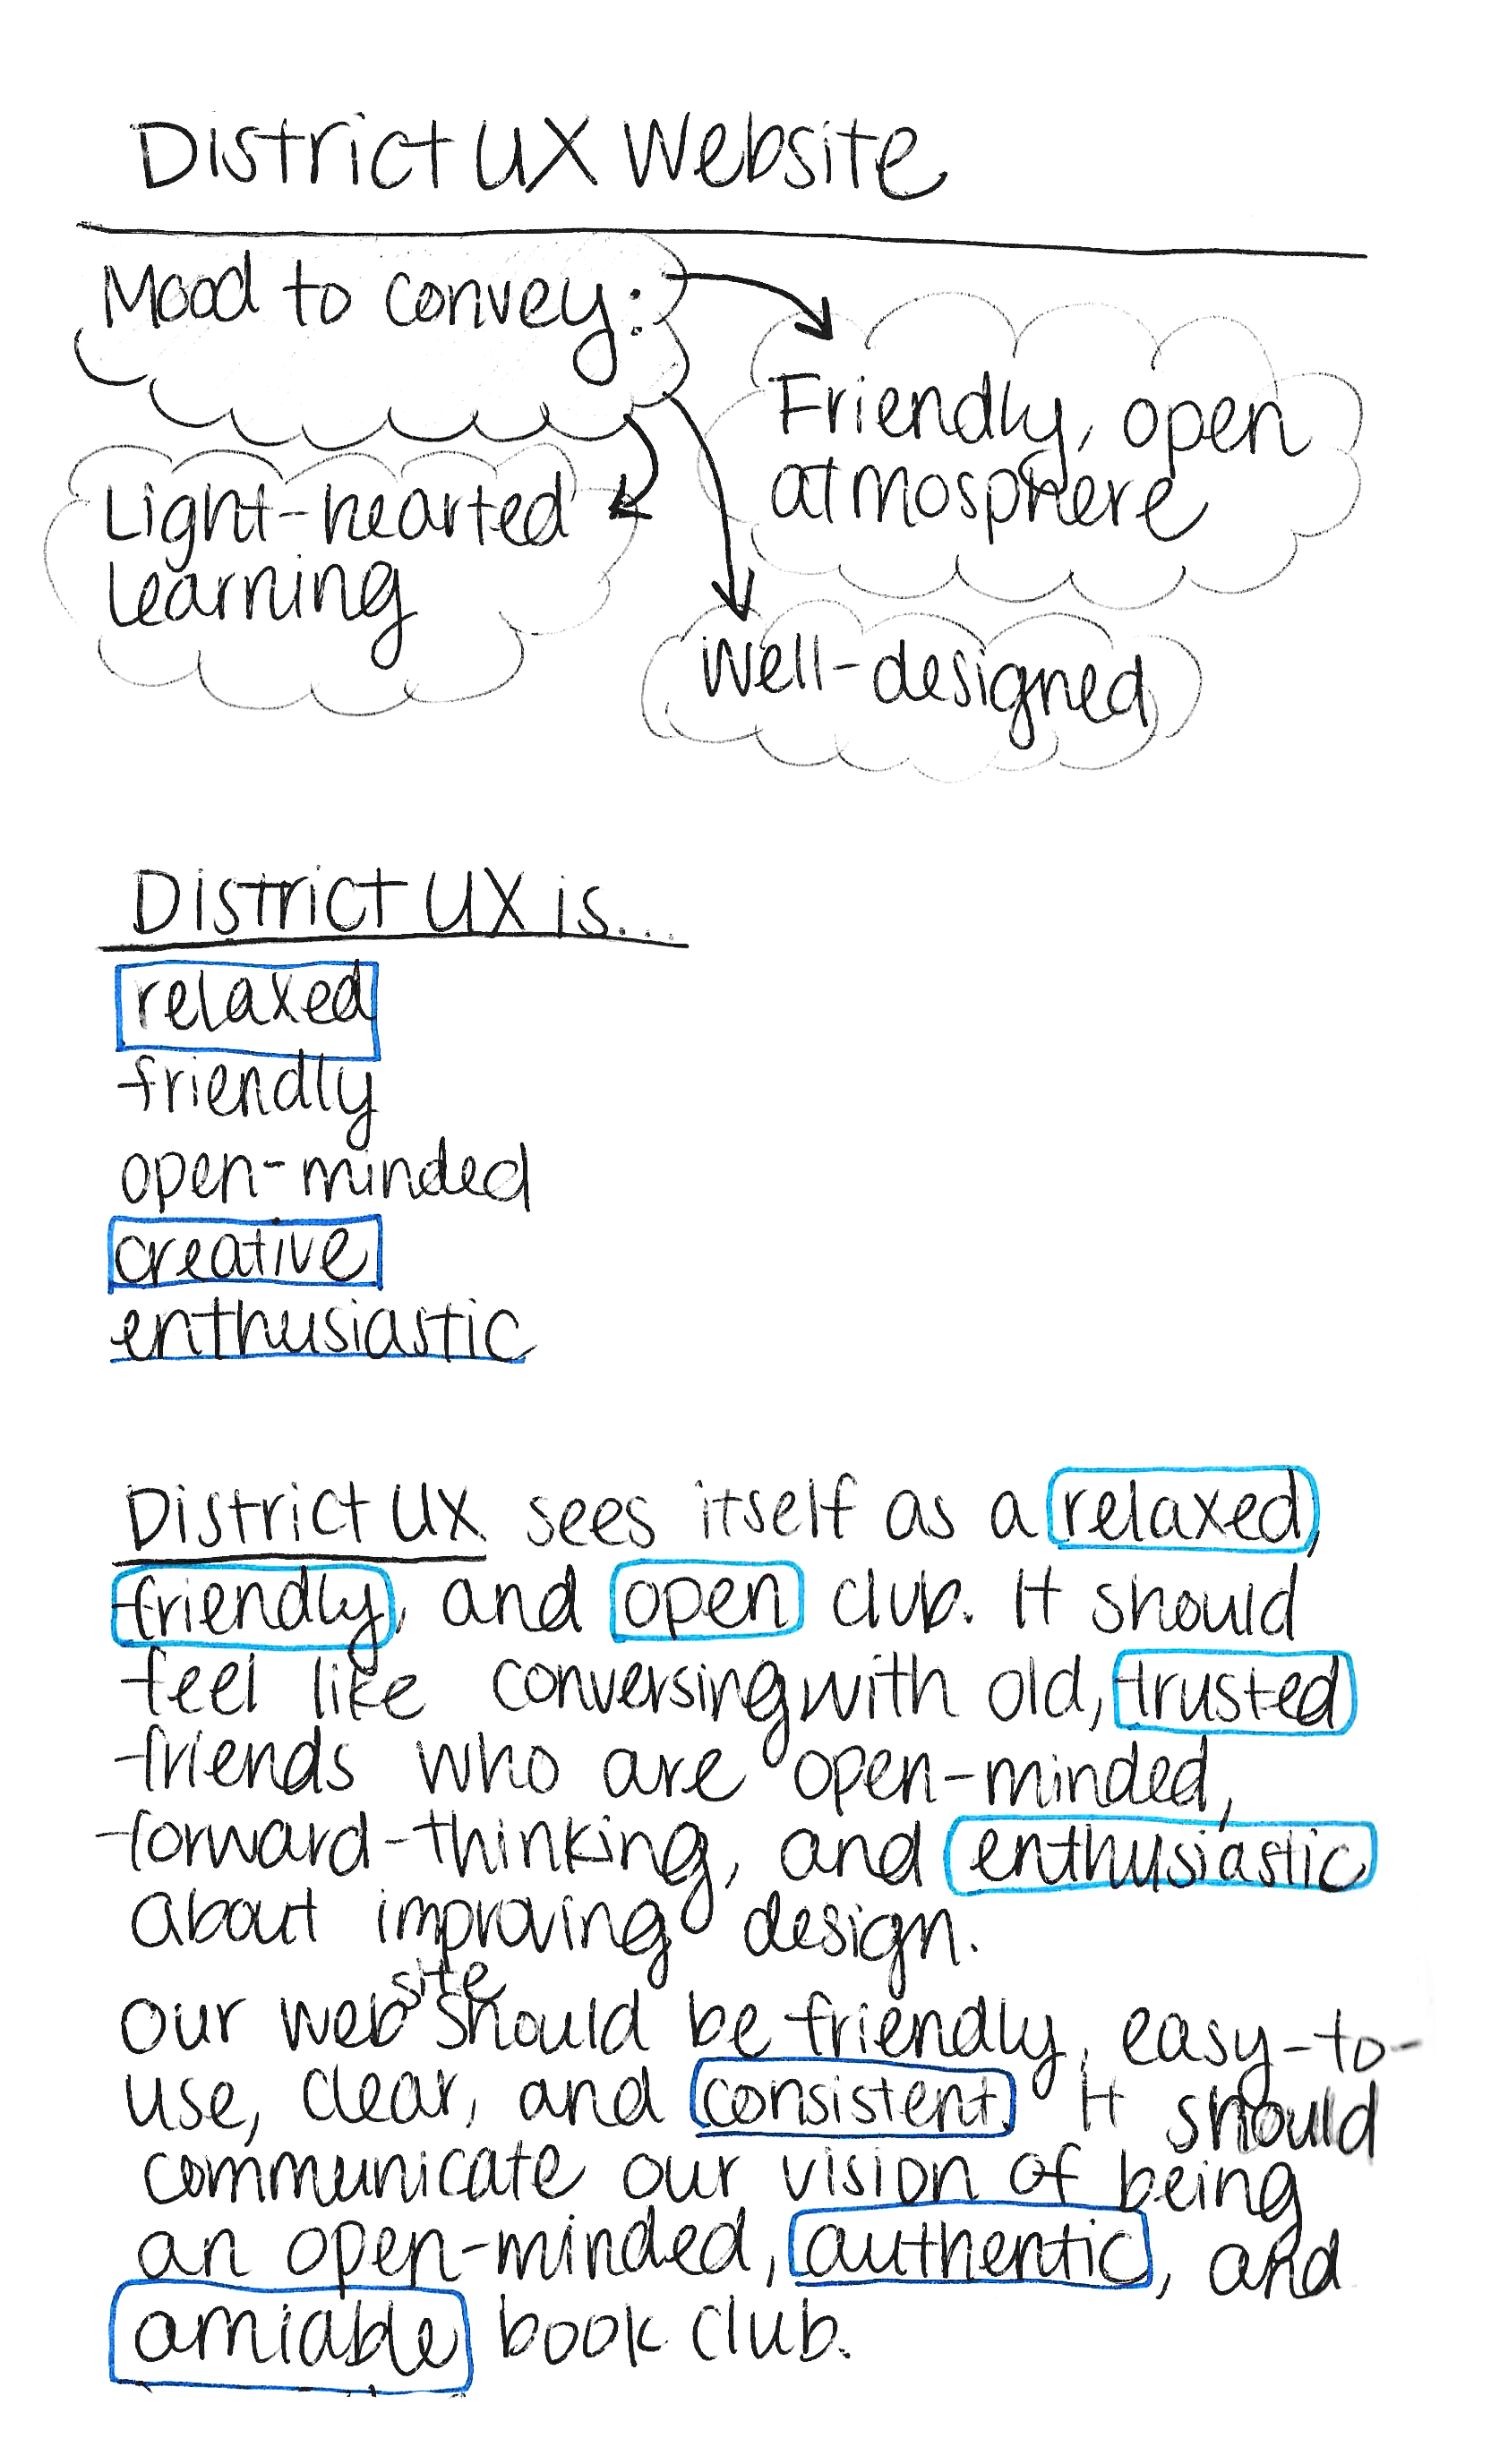 District UX Website
Mood to convey:
Friendly, open
atmosphere
Light-hearted
learning
Well-designed
District UX is...
relaxed
friendly
open-minded
creative
enthusiastic
District UX sees itself as a relaxed,
friendly, and open club. It should
feel like conversing with old, trusted
friends who are open-minded,
forward-thinking, and enthusiastic
about improving design.
Our website should be friendly, easy-to-
use, clear, and consistent. It should
communicate our vision of being
an open-minded, authentic, and
amiable book club.